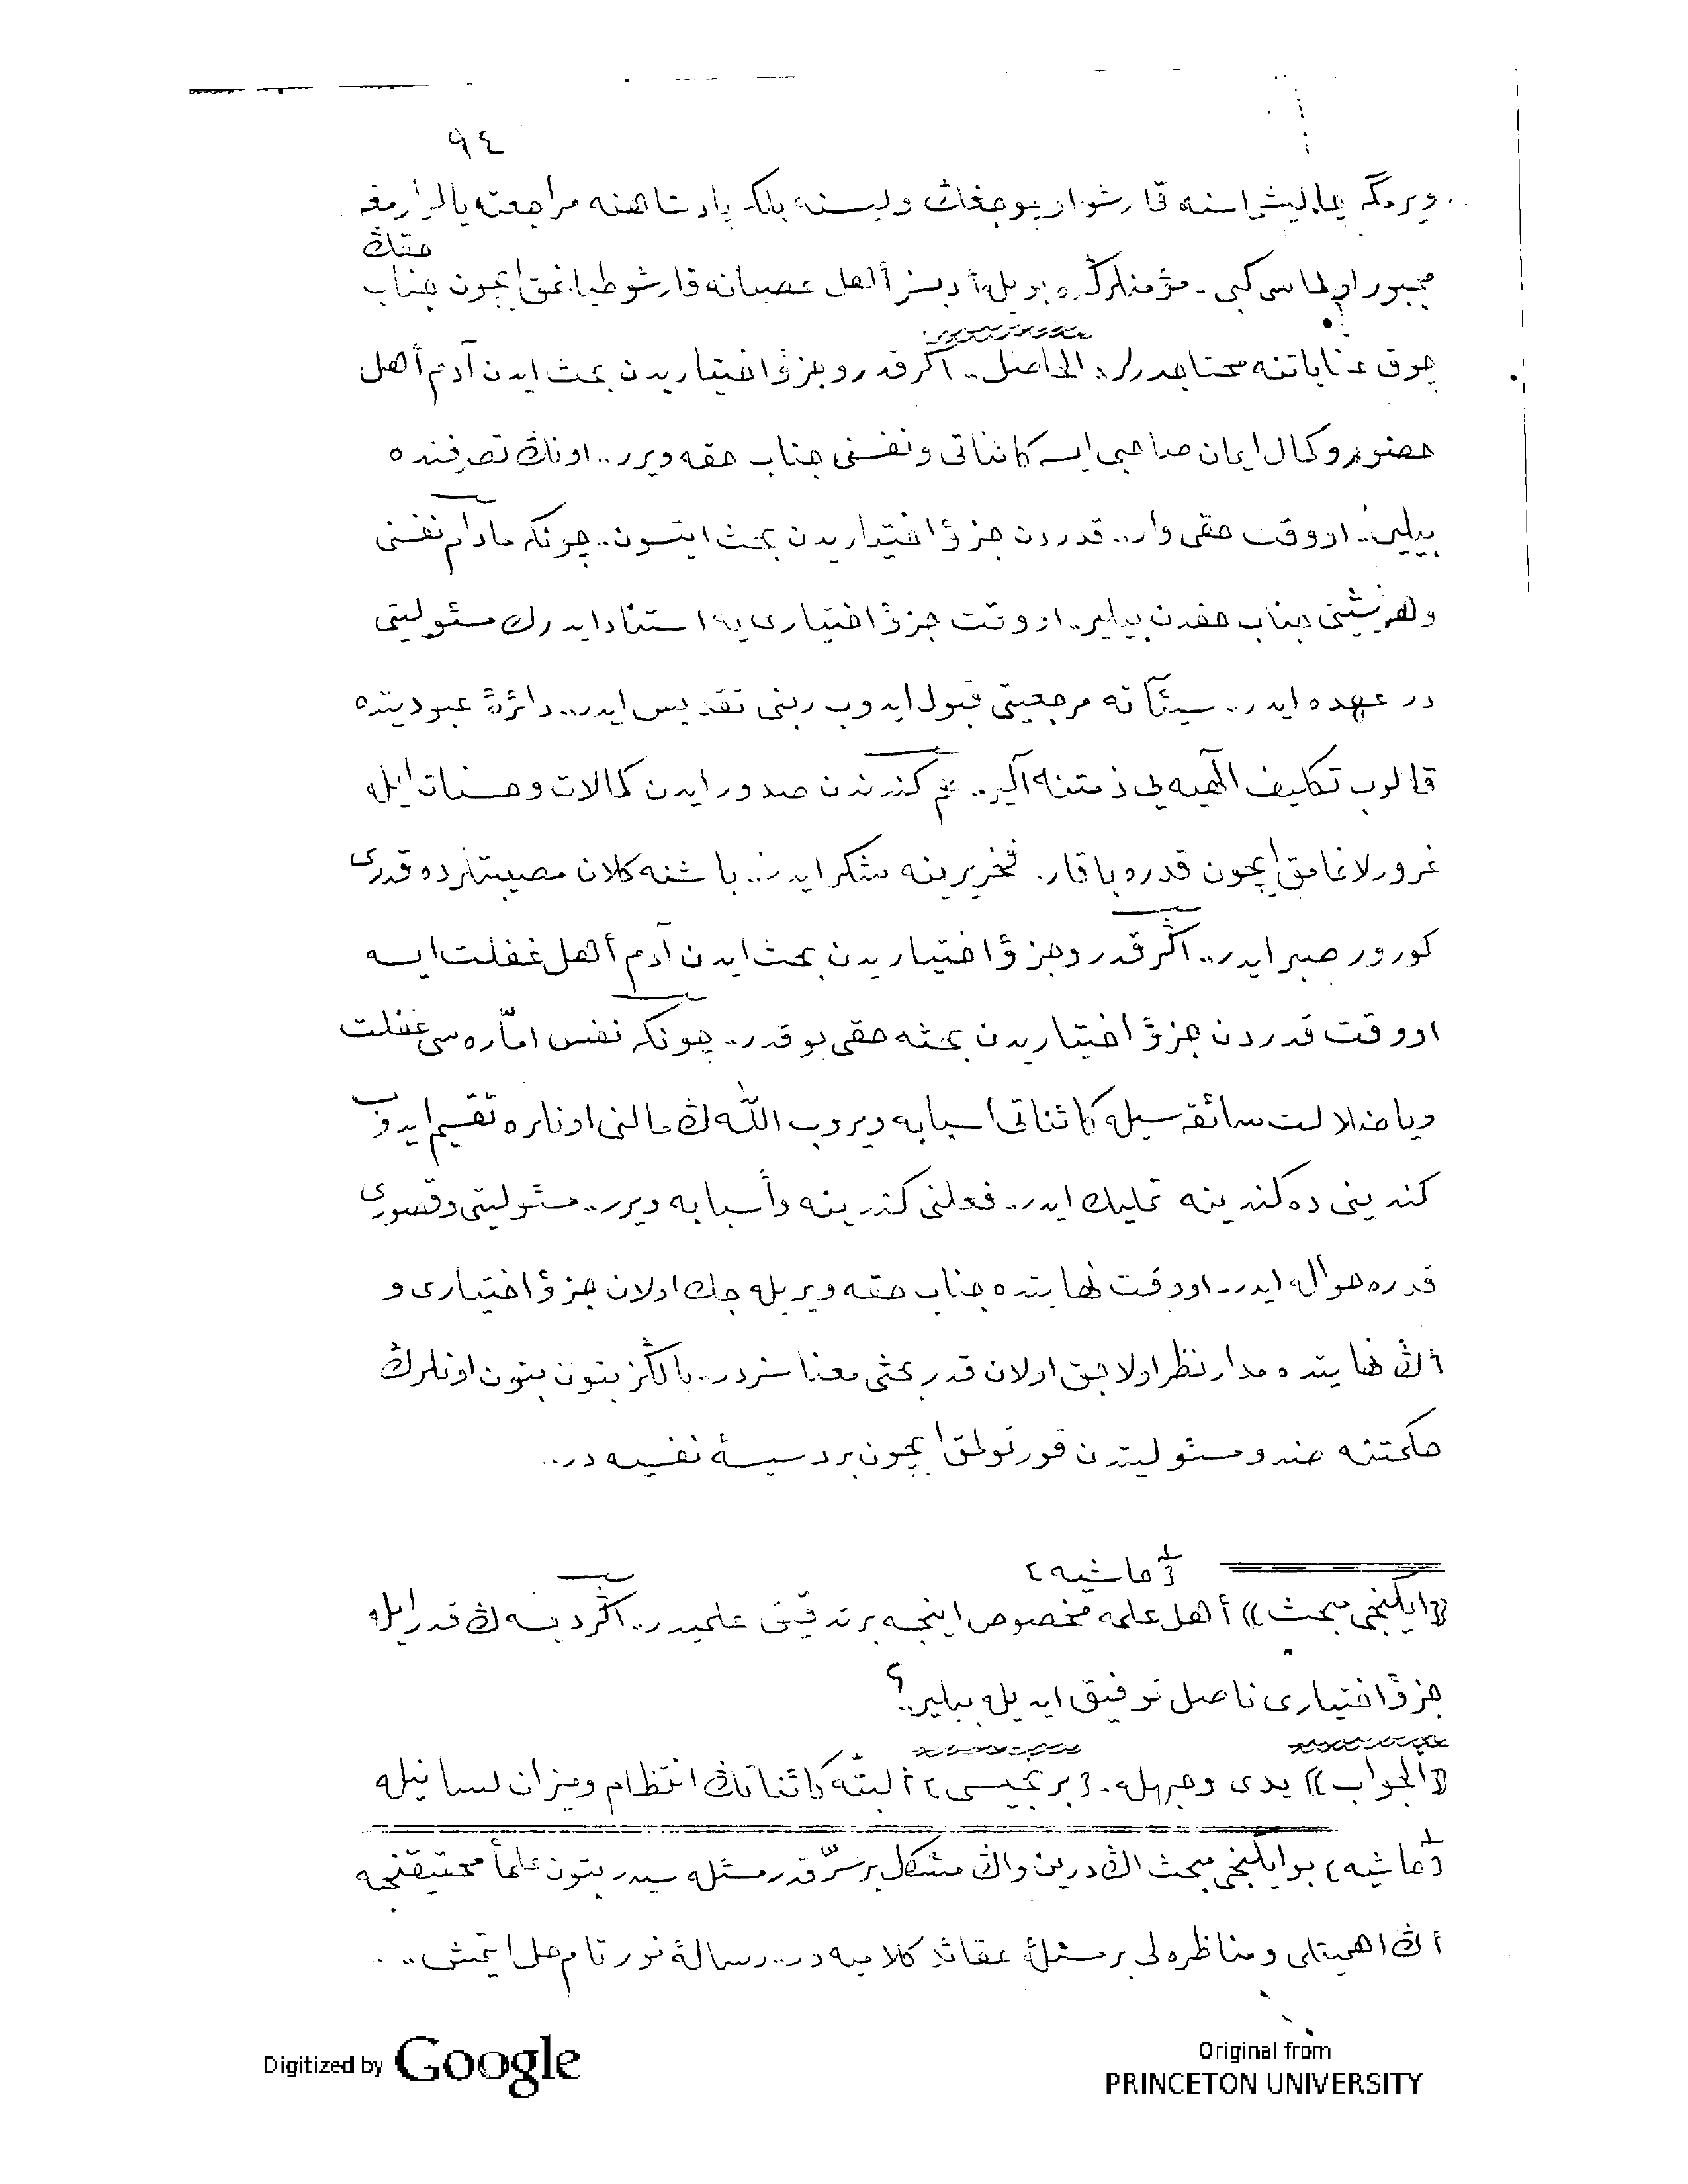 ٩٤
ويرمگه چاليشماسنه قارشو او چوجغك وليسنه بلكه پادشاهنه مراجعته يالوارمغه
مجبور اولماسى كبى. مؤمنلرڭده بويله أدبسز أهل عصيانه قارشو طيانمق ايچون جناب حقك
چوق عناياتنه محتاجدرلر. الحاصل.. اگر قدر و جزؤ اختياريدن بحث ايدن آدم أهل
حضور و كمال ايمان صاحبى ايسه كائناتى و نفسنى جناب حقه ويرر.. اونك تصرفنده
بيلير.. او وقت حقى وار.. قدردن جزؤ اختياريدن بحث ايتسون.. چونكه مادام نفسنى
و هر شيئى جناب حقدن بيلير.. او وقت جزؤ اختيارى يه استناد ايدرك مسئوليتى
در عهده ايدر.. سيئآته مرجعيتى قبول ايدوب ربنى تقديس ايدر.. دائرۀ عبوديتده
قالوب تكليف الٓهيه يى ذمتنه آلير.. هم كندندن صدور ايدن كمالات و حسنات ايله
غرورلانمامق ايچون قدره باقار. فخر يرينه شكر ايدر.. باشنه كلان مصيبتلرده قدرى
كورور صبر ايدر.. اگر قدر و جزؤ اختياريدن بحث ايدن آدم أهل غفلت ايسه
او وقت قدردن جزؤ اختياريدن بحثه حقى يوقدر.. چونكه نفس امّاره سى غفلت
ويا ضلالت سائقه سيله كائناتى اسبابه ويروب اللّٰهك مالنى اونلره تقسيم ايدوب
كندينى ده كندينه تمليك ايدر.. فعلنى كندينه وأسبابه ويرر.. مسئوليتى و قصورى
قدره حواله ايدر.. او وقت نهايتده جناب حقه ويريله جك اولان جزؤ اختيارى و
أڭ نهايتده مدار نظر اولاجق اولان قدر بحثى معناسزدر.. يالڭز بتون بتون اونلرڭ
حكمتنه ضد و مسئوليتدن قورتولمق ايچون بر دسيسۀ نفسيه در..
[حاشيه]
((ايكنجى مبحث)) أهل علمه مخصوص اينجه بر تدقيق علميدر.. اگر ديسه ڭ قدر ايله
جزؤ اختيارى ناصل توفيق ايديله بيلير.؟
((الجواب)) يدى وجهله.. [برنجيسى] ألبتّه كائناتڭ انتظام و ميزان لسانيله
[حاشيه] بو ايكنجى مبحث اڭ درين واڭ مشكل بر سرّ قدر مسئله سيدر بتون علمأ محققينجه
أڭ اهميتلى و مناظره لى بر مسئلۀ عقائد كلاميه در.. رسالۀ نور تام حل ايتمش..
Digitized by Google
Original from
PRINCETON UNIVERSITY